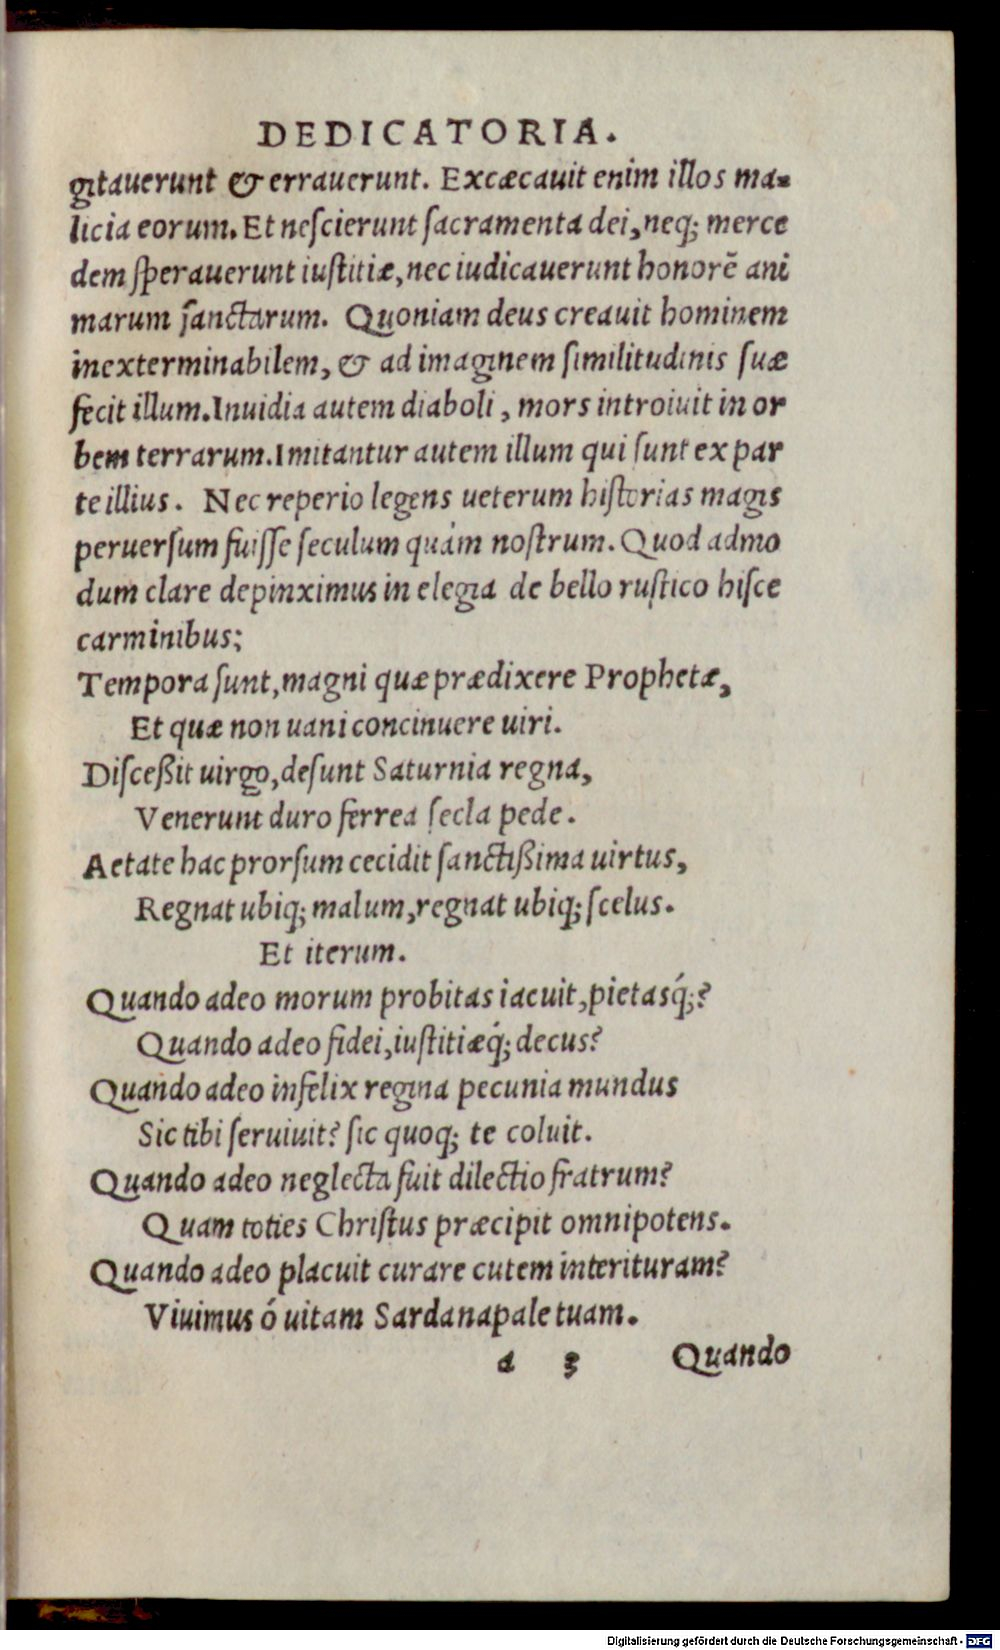 DEDICATORIA.
gitauerunt & errauerunt. Excæcauit enim illos ma-
licia eorum. Et neſcierunt ſacramenta dei, neq; merce
dem ſperauerunt iuſtitiæ, nec iudicauerunt honorē ani
marum ſanctarum. Quoniam deus creauit hominem
inexterminabilem, & ad imaginem ſimilitudinis ſuæ
fecit illum. Inuidia autem diaboli, mors introiuit in or
bem terrarum. Imitantur autem illum qui ſunt ex par
te illius. Nec reperio legens ueterum hiſtorias magis
peruerſum fuiſſe ſeculum quàm noſtrum. Quod admo
dum clare depinximus in elegia de bello ruſtico hiſce
carminibus;
Tempora ſunt, magni quæ prædixere Prophetæ,
Et quæ non uani concinuere uiri.
Diſceßit uirgo, deſunt Saturnia regna,
Venerunt duro ferrea ſecla pede.
Aetate hac prorſum cecidit ſanctißima uirtus,
Regnat ubiq; malum, regnat ubiq; ſcelus.
Et iterum.
Quando adeo morum probitas iacuit, pietasq́;?
Quando adeo fidei, iuſtitiæq́; decus?
Quando adeo infelix regina pecunia mundus
Sic tibi ſeruiuit? ſic quoq; te coluit.
Quando adeo neglecta fuit dilectio fratrum?
Quam toties Chriſtus præcipit omnipotens.
Quando adeo placuit curare cutem interituram?
Viuimus ó uitam Sardanapale tuam.
a 3 Quando
Digitalisierung gefördert durch die Deutsche Forschungsgemeinschaft - DFG